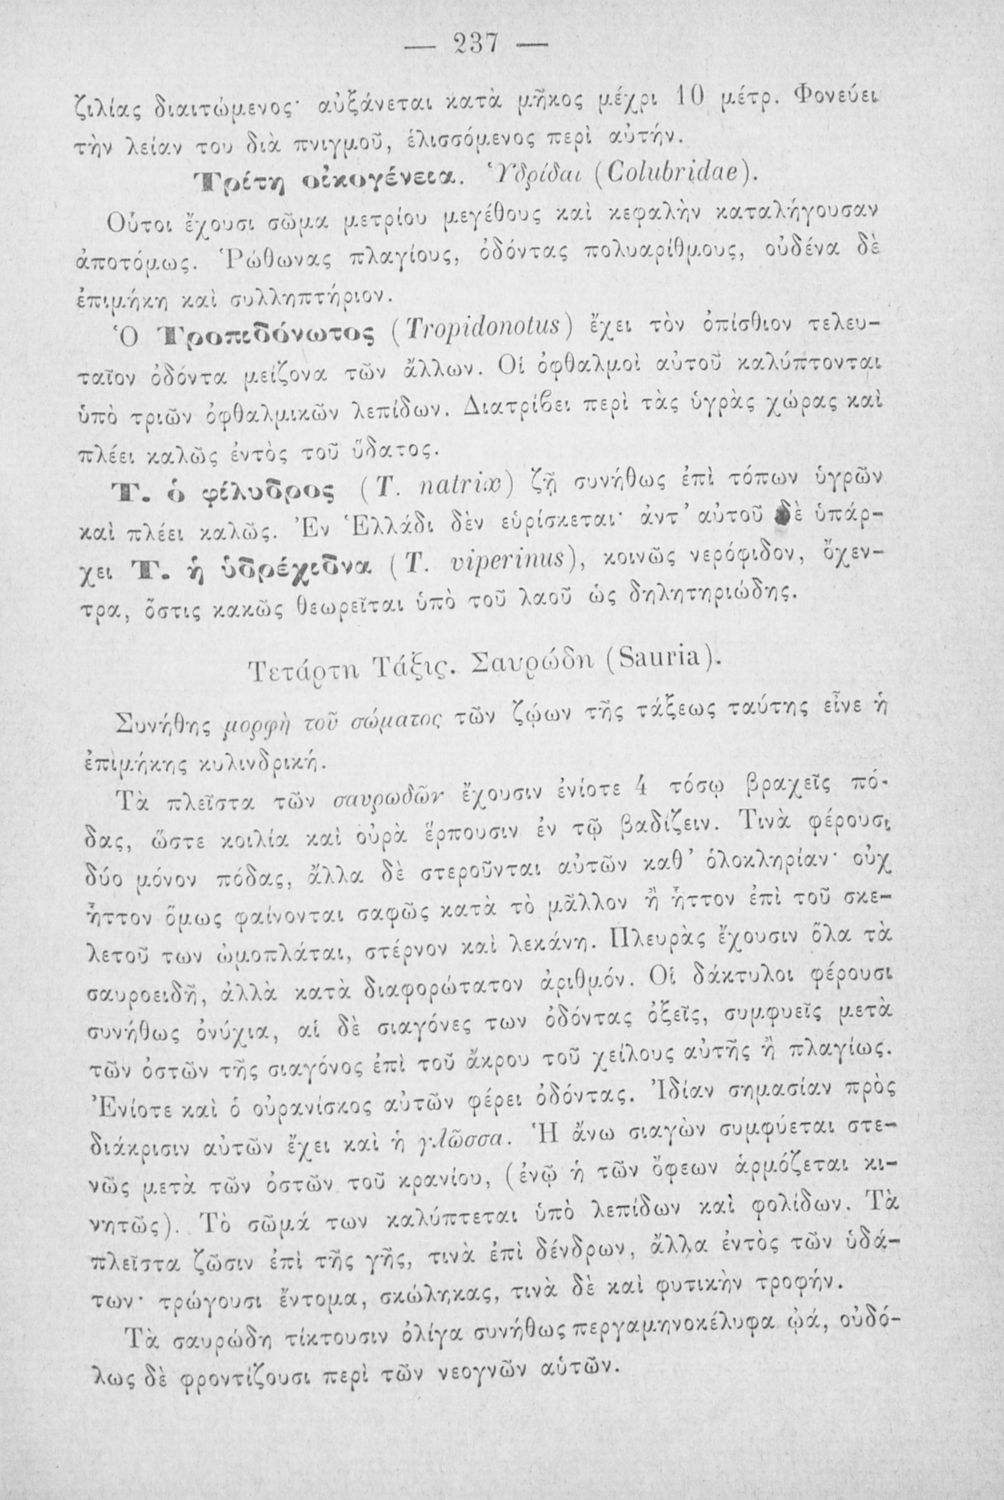 — 237 —
ζιλίας διαιτώμενος· αὐξάνεται κατὰ μῆκος μέχρι 10 μέτρ. Φονεύει
τὴν λείαν του διὰ πνιγμοῦ, ἑλισσόμενος περὶ αὐτήν.
Τρίτη οἰκογένεια. Ὑδρίδαι (Colubridae).
Οὗτοι ἔχουσι σῶμα μετρίου μεγέθους καὶ κεφαλὴν καταλήγουσαν
ἀποτόμως. Ῥώθωνας πλαγίους, ὀδόντας πολυαρίθμους, οὐδένα δὲ
ἐπιμήκη καὶ συλληπτήριον.
Ὁ Τροπιδόνωτος (Tropidonotus) ἔχει τὸν ὀπίσθιον τελευ-
ταῖον ὀδόντα μείζονα τῶν ἄλλων. Οἱ ὀφθαλμοὶ αὐτοῦ καλύπτονται
ὑπὸ τριῶν ὀφθαλμικῶν λεπίδων. Διατρίβει περὶ τὰς ὑγρὰς χώρας καὶ
πλέει καλῶς ἐντὸς τοῦ ὕδατος.
Τ. ὁ φίλυδρος (T. natrix) ζῇ συνήθως ἐπὶ τόπων ὑγρῶν
καὶ πλέει καλῶς. Ἐν Ἑλλάδι δὲν εὑρίσκεται· ἀντ' αὐτοῦ δὲ ὑπάρ-
χει Τ. ἡ ὑδρέχιδνα (T. viperinus), κοινῶς νερόφιδον, ὄχεν-
τρα, ὅστις κακῶς θεωρεῖται ὑπὸ τοῦ λαοῦ ὡς δηλητηριώδης.
Τετάρτη Τάξις. Σαυρώδη (Sauria).
Συνήθης μορφὴ τοῦ σώματος τῶν ζῴων τῆς τάξεως ταύτης εἶνε ἡ
ἐπιμήκης κυλινδρική.
Τὰ πλεῖστα τῶν σαυρωδῶν ἔχουσιν ἐνίοτε 4 τόσῳ βραχεῖς πό-
δας, ὥστε κοιλία καὶ οὐρὰ ἕρπουσιν ἐν τῷ βαδίζειν. Τινὰ φέρουσι
δύο μόνον πόδας, ἄλλα δὲ στεροῦνται αὐτῶν καθ' ὁλοκληρίαν· οὐχ
ἧττον ὅμως φαίνονται σαφῶς κατὰ τὸ μᾶλλον ἢ ἧττον ἐπὶ τοῦ σκε-
λετοῦ των ὠμοπλάται, στέρνον καὶ λεκάνη. Πλευρὰς ἔχουσιν ὅλα τὰ
σαυροειδῆ, ἀλλὰ κατὰ διαφορώτατον ἀριθμόν. Οἱ δάκτυλοι φέρουσι
συνήθως ὀνύχια, αἱ δὲ σιαγόνες των ὀδόντας ὀξεῖς, συμφυεῖς μετὰ
τῶν ὀστῶν τῆς σιαγόνος ἐπὶ τοῦ ἄκρου τοῦ χείλους αὐτῆς ἢ πλαγίως.
Ἐνίοτε καὶ ὁ οὐρανίσκος αὐτῶν φέρει ὀδόντας. Ἰδίαν σημασίαν πρὸς
διάκρισιν αὐτῶν ἔχει καὶ ἡ γλῶσσα. Ἡ ἄνω σιαγὼν συμφύεται στε-
νῶς μετὰ τῶν ὀστῶν τοῦ κρανίου, (ἐνῷ ἡ τῶν ὄφεων ἁρμόζεται κι-
νητῶς). Τὸ σῶμά των καλύπτεται ὑπὸ λεπίδων καὶ φολίδων. Τὰ
πλεῖστα ζῶσιν ἐπὶ τῆς γῆς, τινὰ ἐπὶ δένδρων, ἄλλα ἐντὸς τῶν ὑδά-
των· τρώγουσι ἔντομα, σκώληκας, τινὰ δὲ καὶ φυτικὴν τροφήν.
Τὰ σαυρώδη τίκτουσιν ὀλίγα συνήθως περγαμηνοκέλυφα ᾠά, οὐδό-
λως δὲ φροντίζουσι περὶ τῶν νεογνῶν αὑτῶν.